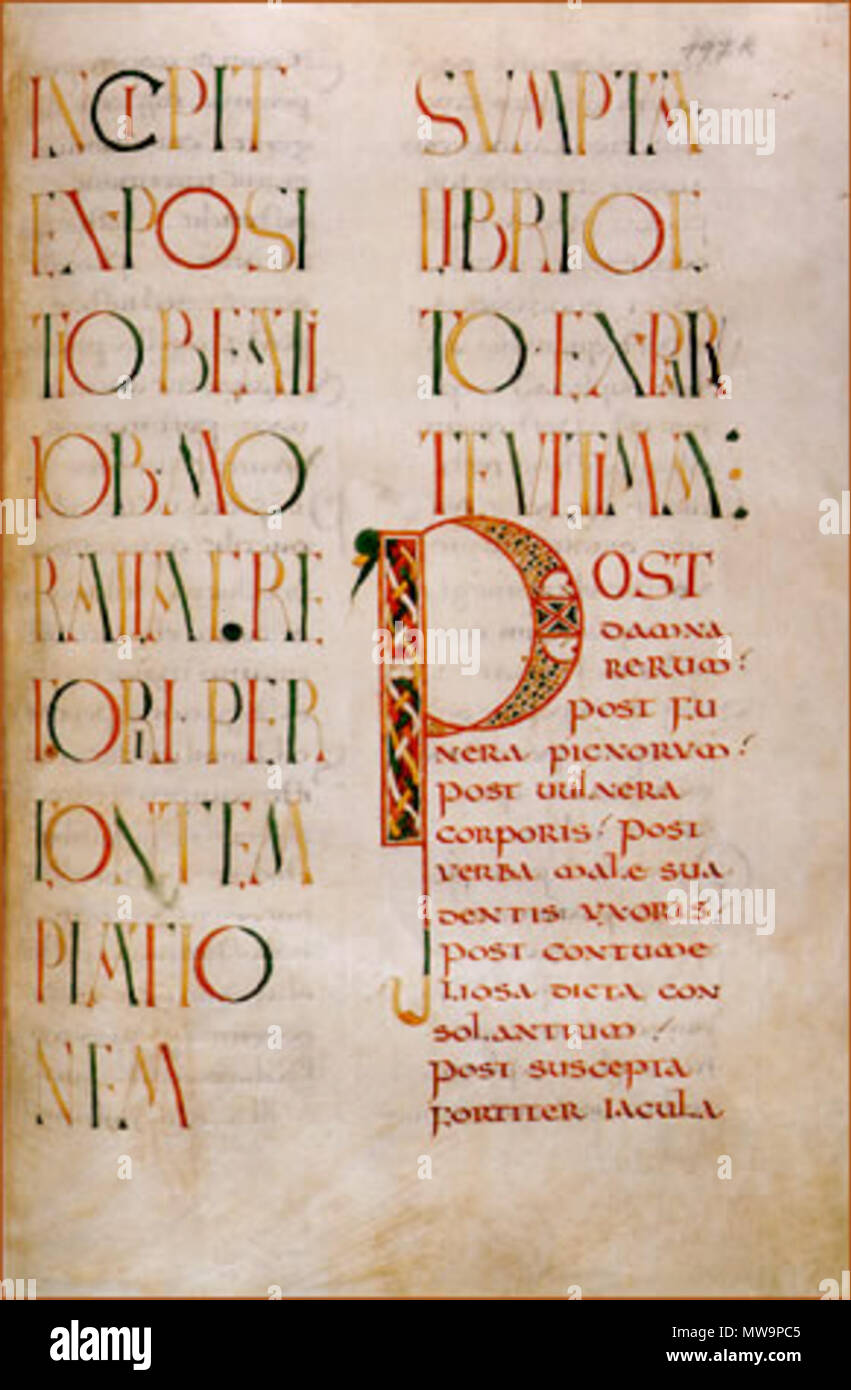 197 R
INCIPIT
EXPOSI
TIO BEATI
IOB MO
RALIAE. RE
FORI PER
CONTEM
PLATIO
NEM
SUMPTA
LIBRI OC
TO EX PAR
TE ULTIMA:
POST
DAMNA
RERUM:
POST FU
NERA PIGNORUM:
POST UULNERA
CORPORIS: POST
UERBA MALE SUA
DENTIS UXORIS:
POST CONTUME
LIOSA DICTA CON
SOLANTIUM:
POST SUSCEPTA
FORTITER IACULA
alamy
Image ID: MW9PC5
www.alamy.com